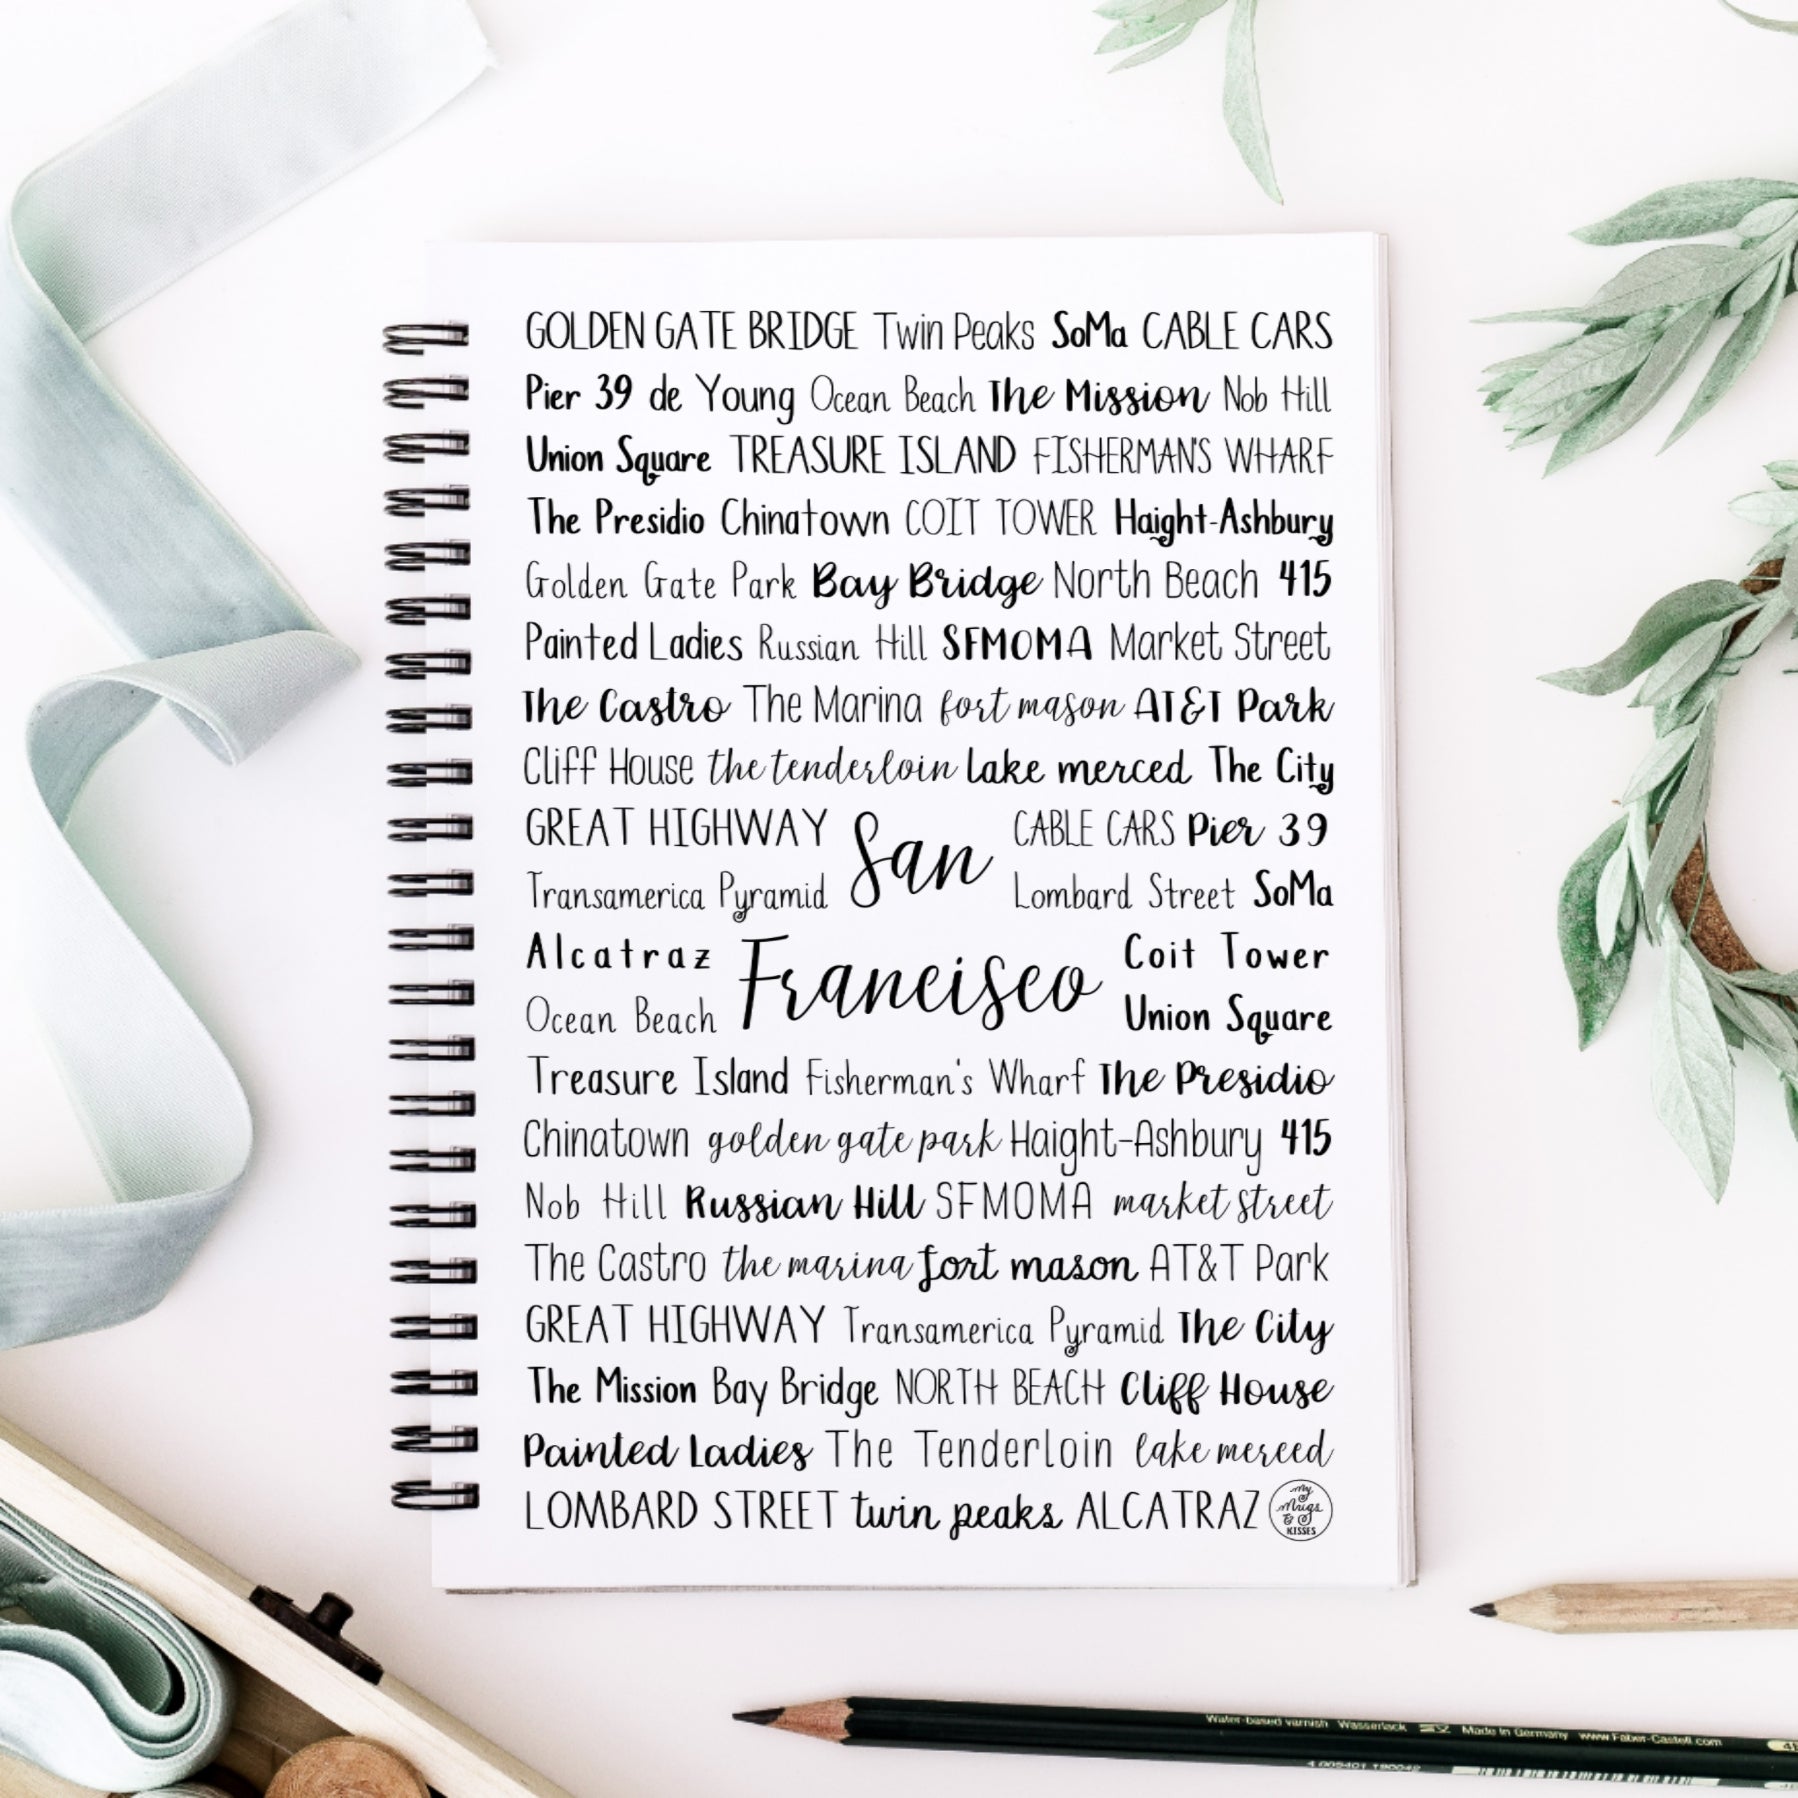 GOLDEN GATE BRIDGE Twin Peaks SoMa CABLE CARS
Pier 39 de Young Ocean Beach The Mission Nob Hill
Union Square TREASURE ISLAND FISHERMAN'S WHARF
The Presidio Chinatown COIT TOWER Haight-Ashbury
Golden Gate Park Bay Bridge North Beach 415
Painted Ladies Russian Hill SFMOMA Market Street
The Castro The Marina fort mason AT&T Park
Cliff House the tenderloin lake merced The City
GREAT HIGHWAY San CABLE CARS Pier 39
Transamerica Pyramid Lombard Street SoMa
Alcatraz Francisco Coit Tower
Ocean Beach Union Square
Treasure Island Fisherman's Wharf The Presidio
Chinatown golden gate park Haight-Ashbury 415
Nob Hill Russian Hill SFMOMA market street
The Castro the marina fort mason AT&T Park
GREAT HIGHWAY Transamerica Pyramid The City
The Mission Bay Bridge NORTH BEACH Cliff House
Painted Ladies The Tenderloin lake merced
LOMBARD STREET twin peaks ALCATRAZ
My
Mugs
&
KISSES
Water-based varnish Wasserlack Made in Germany www.Faber-Castell.com
4 005401 190042